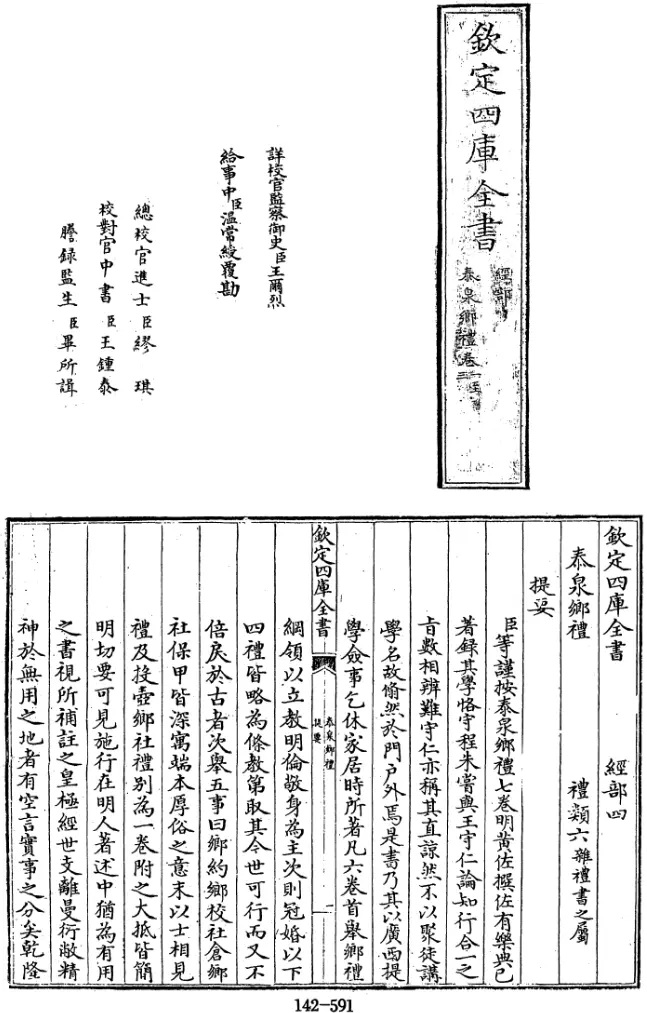 欽定四庫全書
經部
泰泉鄉禮卷一至三
詳校官監察御史臣王爾烈
給事中臣溫常綬覆勘
總校官進士臣繆琪
校對官中書臣王鍾泰
謄錄監生臣畢所諿
欽定四庫全書 經部四
泰泉鄉禮 禮類六雜禮書之屬
提要
臣等謹按泰泉鄉禮七卷明黃佐撰佐有樂典已
著錄其學恪守程朱嘗與王守仁論知行合一之
旨數相辨難守仁亦稱其直諒然不以聚徒講
學名故翛然於門户外焉是書乃其以廣西提
學僉事乞休家居時所著凡六卷首舉鄉禮
欽定四庫全書 泰泉鄉禮提要 一
綱領以立教明倫敬身為主次則冠婚以下
四禮皆略為條教第取其今世可行而又不
倍戾於古者次舉五事曰鄉約鄉校社倉鄉
社保甲皆深寓端本厚俗之意末以士相見
禮及投壺鄉社禮別為一卷附之大抵皆簡
明切要可見施行在明人著述中猶為有用
之書視所補註之皇極經世支離曼衍敝精
神於無用之地者有空言實事之分矣乾隆
142-591